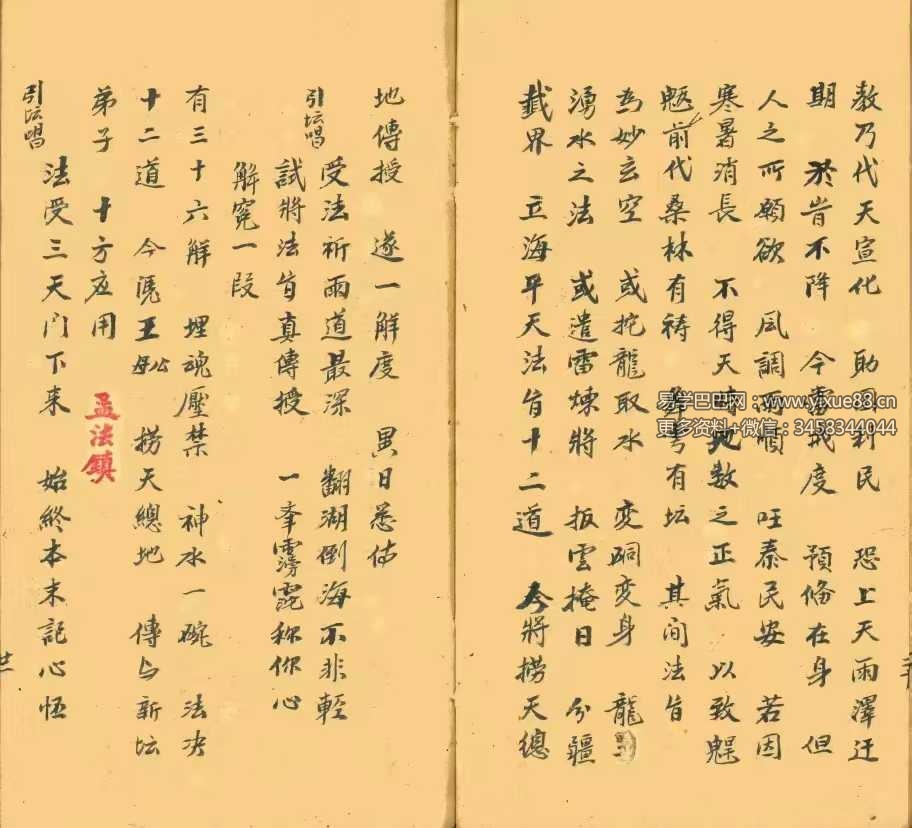 教乃代天宣化 助国利民 恐上天雨澤迂
期 於旹不降 今當戒度 預俻在身 但
人之所願欲 风調雨順 旺泰民安 若因
寒暑消長 不得天時地数之正氣 以致魃
魃前代桑林有祷 有坛 其间法旨
為妙玄空 或挖龍取水 变硐变身 龍
湧水之法 或遣雷煉將 扳雲掩日 分疆
截界 立海平天法旨十二道 今將捞天總
地傳授 遂一解度 異日悉依
引坛唱
受法祈雨道最深 翻湖倒海不非軽
試將法旨真傳授 一峯霶霓称你心
解寃一段
有三十六解 埋魂壓禁 神水一碗 法决
十二道 今凭王母 捞天總地 傳与新坛
弟子 十方应用
孟法鎮
引坛唱
法受三天门下来 始終本末記心悟
易学巴巴网：www.yixue88.cn
更多资料+微信：3458344044